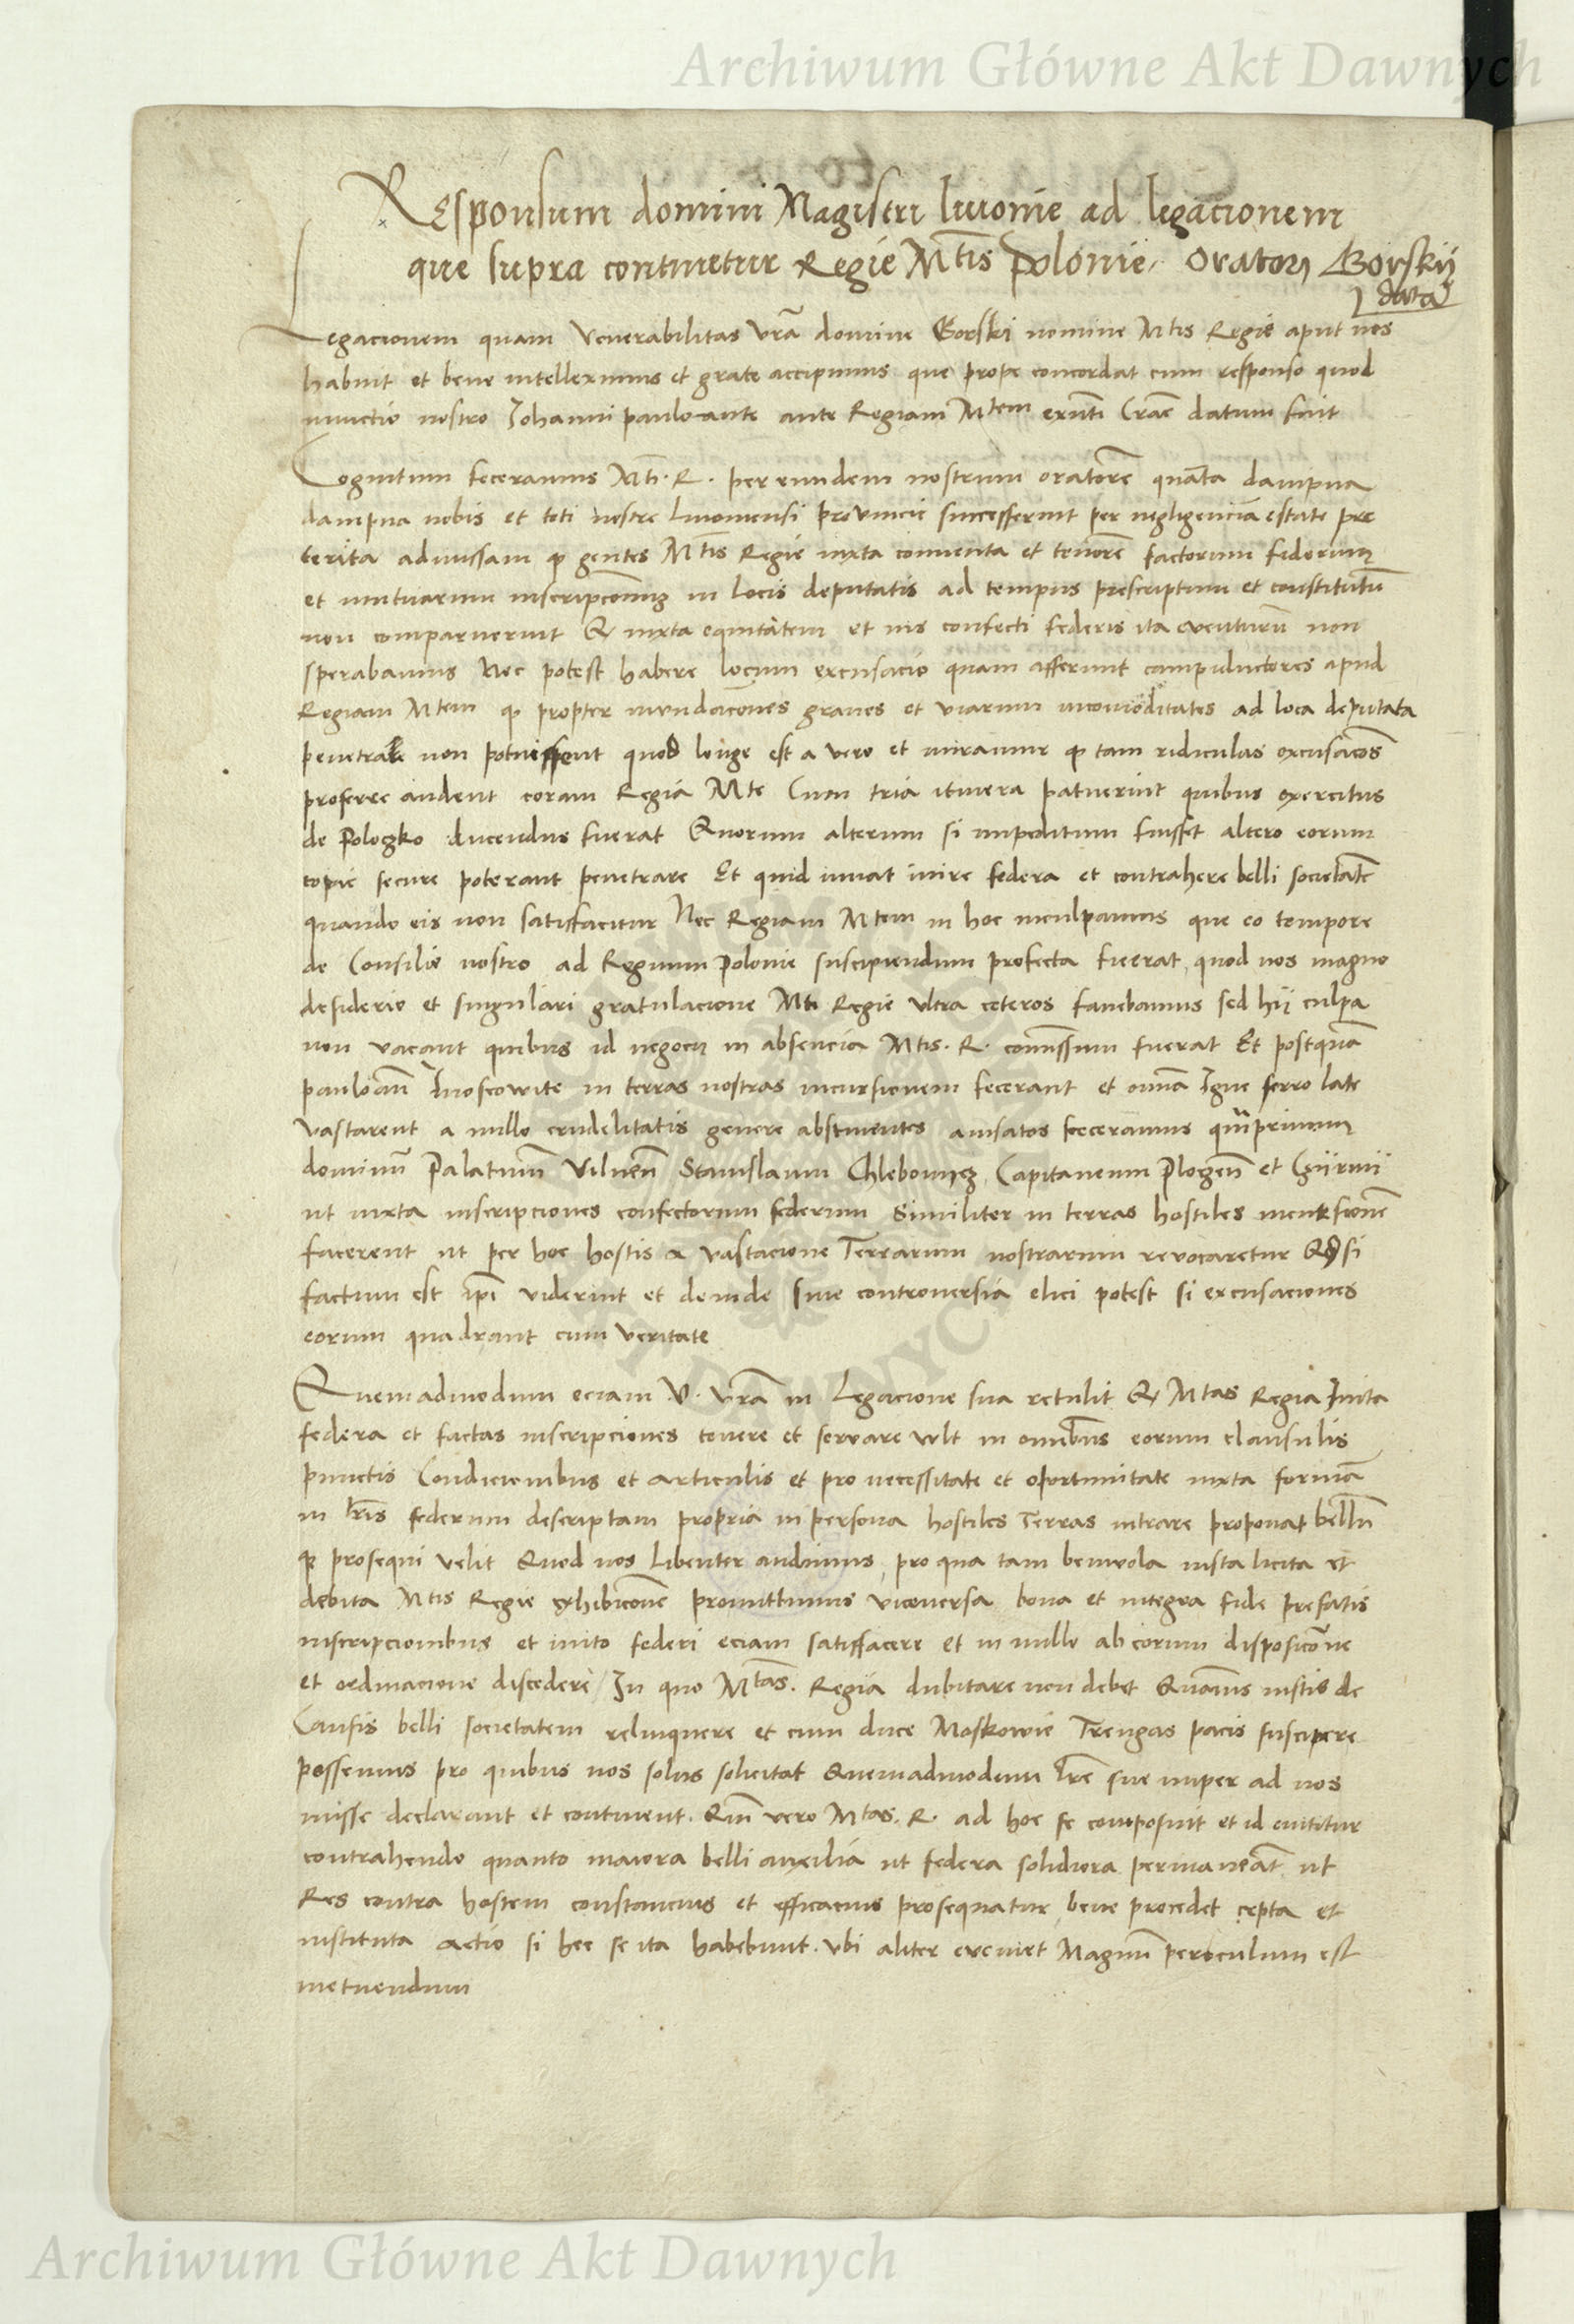 Archiwum Główne Akt Dawnych
Responsum domini Magistri livonie ad legacionem
que supra continetur Regie Mtis polonie oratori Gorskij
data
Legacionem quam Venerabilitas vra domine Gorski nomine Mtis Regie aput nos
habuit et bene intelleximus et grate accipimus que prope concordat cum responso quod
nunctio nostro Johanni paulo ante ante Regiam Mtem Crac datum fuit
Cognitum feceramus Mti R. per eundem nostrum oratore quanta dampna
dampna nobis et toti nostre livoniensi provincie successerint per negligencia estate pre
terita admissam q gentes Mtis Regie iuxta conventa et tenore factorum federum
et mutuarum inscripconum in locis deputatis ad tempus prescriptum et constitutu
non comparuerunt Q iuxta equitatem et ius confecti federis ita eventuru non
sperabamus Nec potest habere locum excusacio quam afferunt campiductores apud
Regiam Mtem q propter inundacones graves et viarum incomoditates ad loca deputata
penetrare non potuissent quod longe est a vero et miramur q tam ridiculas excusacos
proferre audent coram Regia Mte Cum tria itinera patuerint quibus exercitus
de Poloczko ducendus fuerat Quorum alterum si impeditum fuisset altero eorum
copie secure poterant penetrare Et quid iuvat inire federa et contrahere belli societate
quando eis non satisfacitur Nec Regiam Mtem in hoc inculpamus que eo tempore
de Consilio nostro ad Regnum Polonie suscipiendum profecta fuerat quod nos magno
desiderio et singulari gratulacione Mti Regie ultra ceteros favebamus sed hij culpa
non vacant quibus id negocij in absencia Mtis. R. comissum fuerat Et postqua
paulo an moscowite in terras nostras incursionem fecerant et omia Igne ferro late
vastarent a nullo crudelitatis genere abstinentes avisatos feceramus quamprimum
dominu Palatinu Vilnen Stanislaum Chlebowicz Capitaneum Plogen et
ut iuxta inscripciones confectorum federum similiter in terras hostiles incursione
facerent ut per hoc hostis a vastacione Terrarum nostrarum revocaretur Qd si
factum est ipi viderint et deinde sine controversia elici potest si excusaciones
eorum quadrant cum veritate
Quemadmodum eciam V. vra in Legacione sua retulit Q Mtas Regia Inita
federa et factas inscripciones tenere et servare vlt in omibus eorum clausulis
punctis Condicionibus et articulis et pro necessitate et oportunitate iuxta forma
in lris federum descriptam propria in persona hostiles Terras intrare proponat bellu
q prosequi velit Quod nos Libenter audimus pro qua tam benivola iusta licita et
debita Mtis Regie exhibicone promittimus viceversa bona et integra fide prefatis
inscripcionibus et inito federi eciam satisfacere et in nullo ab eorum disposicone
et ordinacione discedere In quo Mtas. Regia dubitare non debet Quamvis iustis de
Causis belli societatem relinquere et cum duce Moskovie Treugas pacis suscipere
possemus pro quibus nos solus solicitat Quemadmodum lre sue nuper ad nos
misse declarant et continent. Qm vero Mtas. R. ad hoc se composuit et id enititur
contrahendo quanto maiora belli auxilia ut federa solidiora permaneat ut
Res contra hostem constancius et efficacius prosequatur bene procedet cepta et
instituta actio si hec se ita habebunt. Ubi aliter eveniet Magnu periculum est
metuendum
Archiwum Główne Akt Dawnych